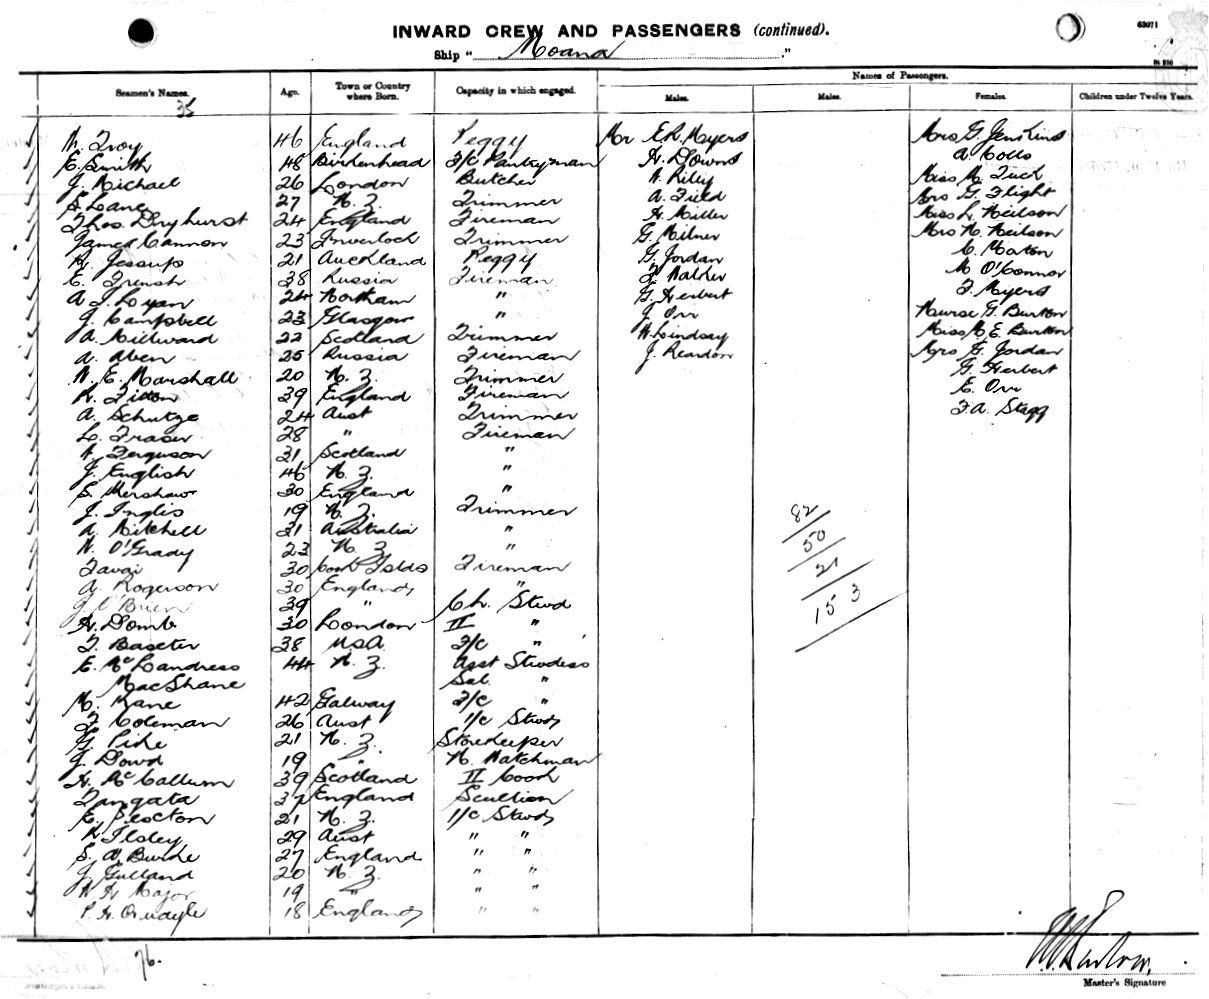 INWARD CREW AND PASSENGERS (continued).
63071
Ship " Moana ."
Names of Passengers.
Seamen's Names. Age. Town or Country where Born. Capacity in which engaged. Males. Males. Females. Children under Twelve Years.
35
W. Troy 46 England Peggy Mr E.R. Myers Mrs G. Jenkins
E. Smith 48 Birkenhead 3/c Pantryman H. Downs A. Cotts
J. Michael 26 London Butcher W. Riley Miss M. Tuck
S. Lane 27 N.Z. Trimmer A. Field Mrs G. Flight
Thos. Dryhurst 24 England Fireman H. Miller Miss L. Neilson
James Cannon 23 Inverloch Trimmer G. Milner Mrs N. Neilson
R. Jessup 21 Auckland Peggy G. Jordan C. Moxton
E. Trensh 38 Russia Fireman M O'Connor
A. J. Logan 24 Northam " G. Herbert F. Myers
J. Campbell 23 Glasgow " J. Orr Nurse G. Burton
A. Millward 22 Scotland Trimmer W. Lindsay Miss M. E. Burton
A. Aben 25 Russia Fireman J. Reardon Mrs G. Jordan
W. E. Marshall 20 N.Z. Trimmer G. Herbert
R. Fitton 39 England Fireman E. Orr
A. Schutze 24 Aust Trimmer F.A. Stagg
L. Fraser 28 " Fireman
W. Ferguson 31 Scotland "
J. English 46 N.Z. "
S. Kershaw 30 England "
J. Inglis 19 N.Z. Trimmer
A. Mitchell 31 Australia "
W. O'Grady 23 N.Z. "
Tavai 30 Cook Islds Fireman
A. Rogerson 30 England "
J. O'Brien 39 " Ch. Stwd
H. Domb 30 London II "
F. Baxter 38 USA 3/c "
E. McLandress 44 N.Z. Asst Stwdess
MacShane Sal. "
M. Kane 42 Galway 3/c "
F. Coleman 26 Aust 1/c Stwds
G. Pike 21 N.Z. Storekeeper
J. Dowd 19 " N. Watchman
H. McCallum 39 Scotland II Cook
Tangata 32 England Scullion
E. Plocton 21 N.Z. 1/c Stwds
R. Ilsley 29 Aust " "
S. A. Burke 27 England " "
J. Gulland 20 N.Z. " "
W H Major 19 " " "
P. H. Quayle 18 England " "
82
50
21
153
76.
Master's Signature